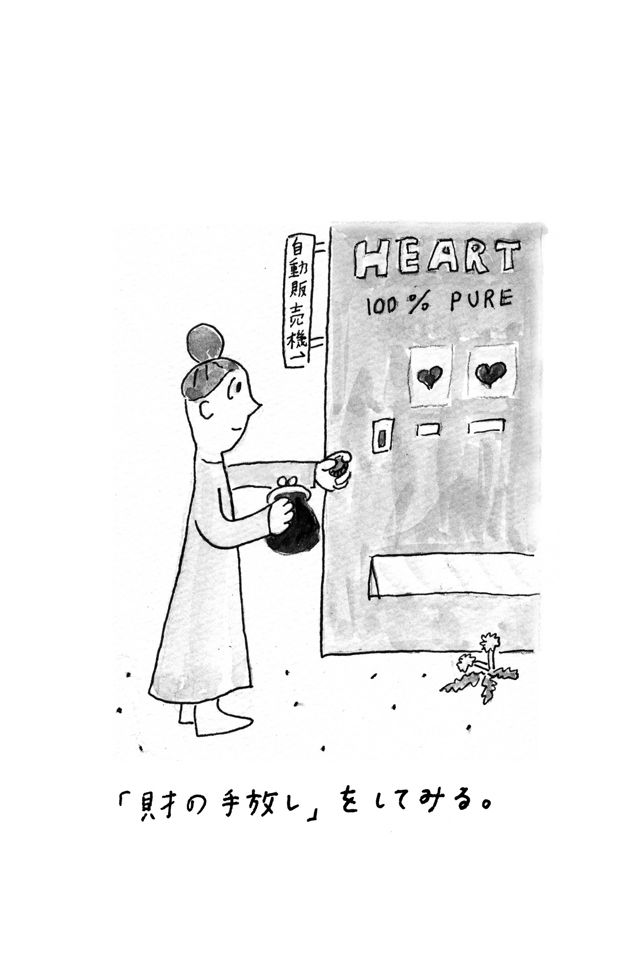 自動販売機→
HEART
100% PURE
「財の手放し」をしてみる。